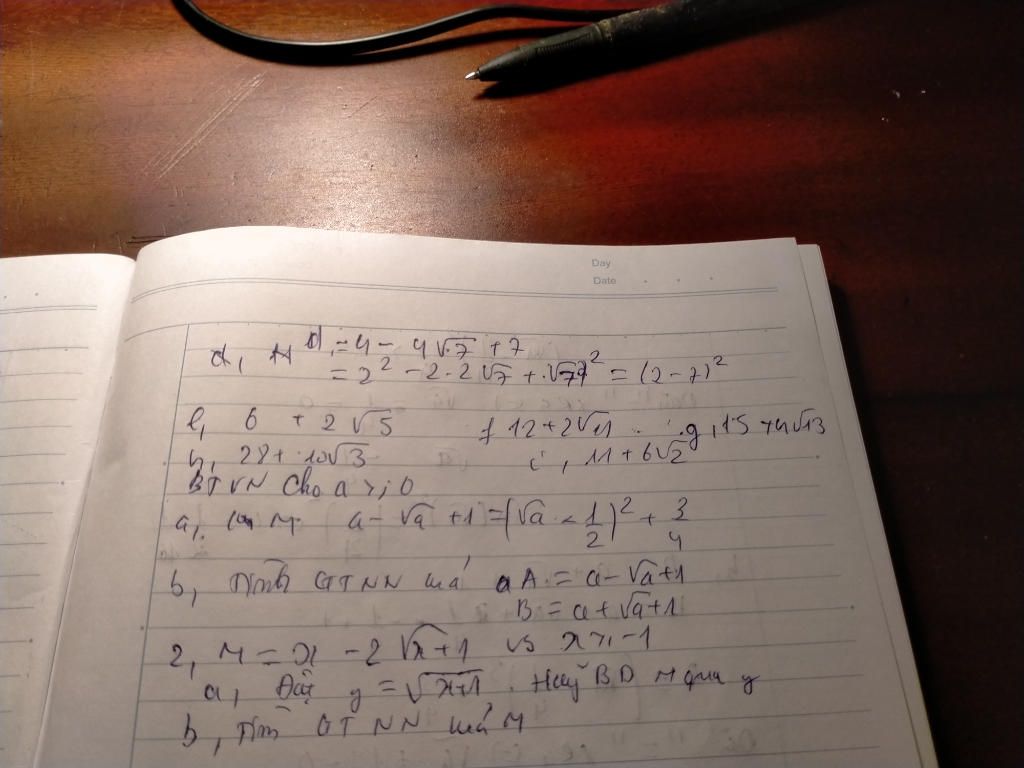 Day
Date
d, D = 4 - 4√7 + 7
= 2² - 2.2√7 + √7² = (2-7)²
e, 6 + 2√5 f 12+2√11 g, 15 + 4√13
h, 28 + 10√3 i, 11 + 6√2
BTVN Cho a ≥ 0
a, CM a - √a + 1 = (√a - 1/2)² + 3/4
b, Tính GTNN của A = a - √a + 1
B = a + √a + 1
2, M = x - 2√x+1 vs x ≥ -1
a, Đặt y = √x+1. Hãy BD M qua y
b, Tìm GTNN của M